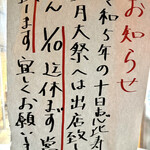 お知らせ
令和5年の十日恵比寿
月大祭へは出店致
ん 1/10 迄休ます営
ります 宜しくお願いま